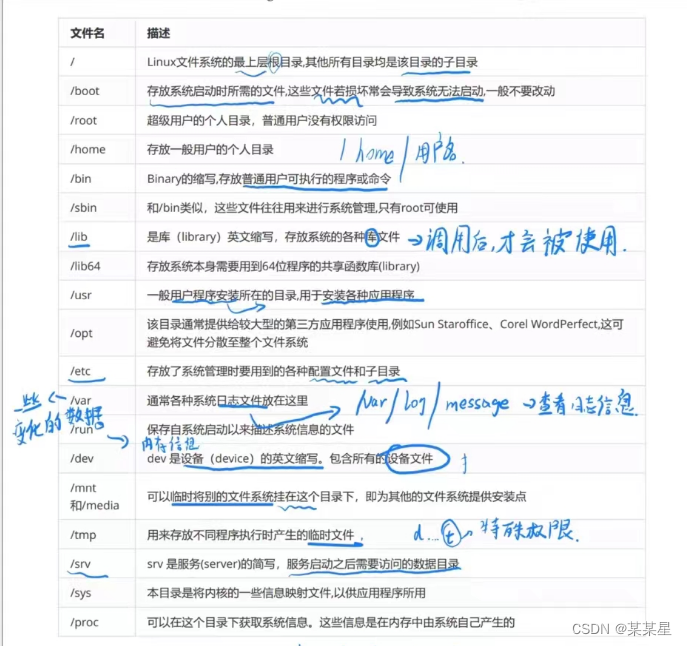 文件名 描述
/ Linux文件系统的最上层根目录,其他所有目录均是该目录的子目录
/boot 存放系统启动时所需的文件,这些文件若损坏常会导致系统无法启动,一般不要改动
/root 超级用户的个人目录，普通用户没有权限访问
/home 存放一般用户的个人目录 /home/用户名.
/bin Binary的缩写,存放普通用户可执行的程序或命令
/sbin 和/bin类似，这些文件往往用来进行系统管理,只有root可使用
/lib 是库（library）英文缩写，存放系统的各种库文件 →调用后,才会被使用.
/lib64 存放系统本身需要用到64位程序的共享函数库(library)
/usr 一般用户程序安装所在的目录,用于安装各种应用程序
/opt 该目录通常提供给较大型的第三方应用程序使用,例如Sun Staroffice、Corel WordPerfect,这可
避免将文件分散至整个文件系统
/etc 存放了系统管理时要用到的各种配置文件和子目录
一些
/var 通常各种系统日志文件放在这里 /var/log/message →查看日志信息.
变化的数据
/run 保存自系统启动以来描述系统信息的文件
→内存信息
/dev dev 是设备（device）的英文缩写。包含所有的设备文件
/mnt 可以临时将别的文件系统挂在这个目录下，即为其他的文件系统提供安装点
和/media
/tmp 用来存放不同程序执行时产生的临时文件 d...t 特殊权限.
/srv srv 是服务(server)的简写，服务启动之后需要访问的数据目录
/sys 本目录是将内核的一些信息映射文件,以供应用程序所用
/proc 可以在这个目录下获取系统信息。这些信息是在内存中由系统自己产生的
CSDN @某某星